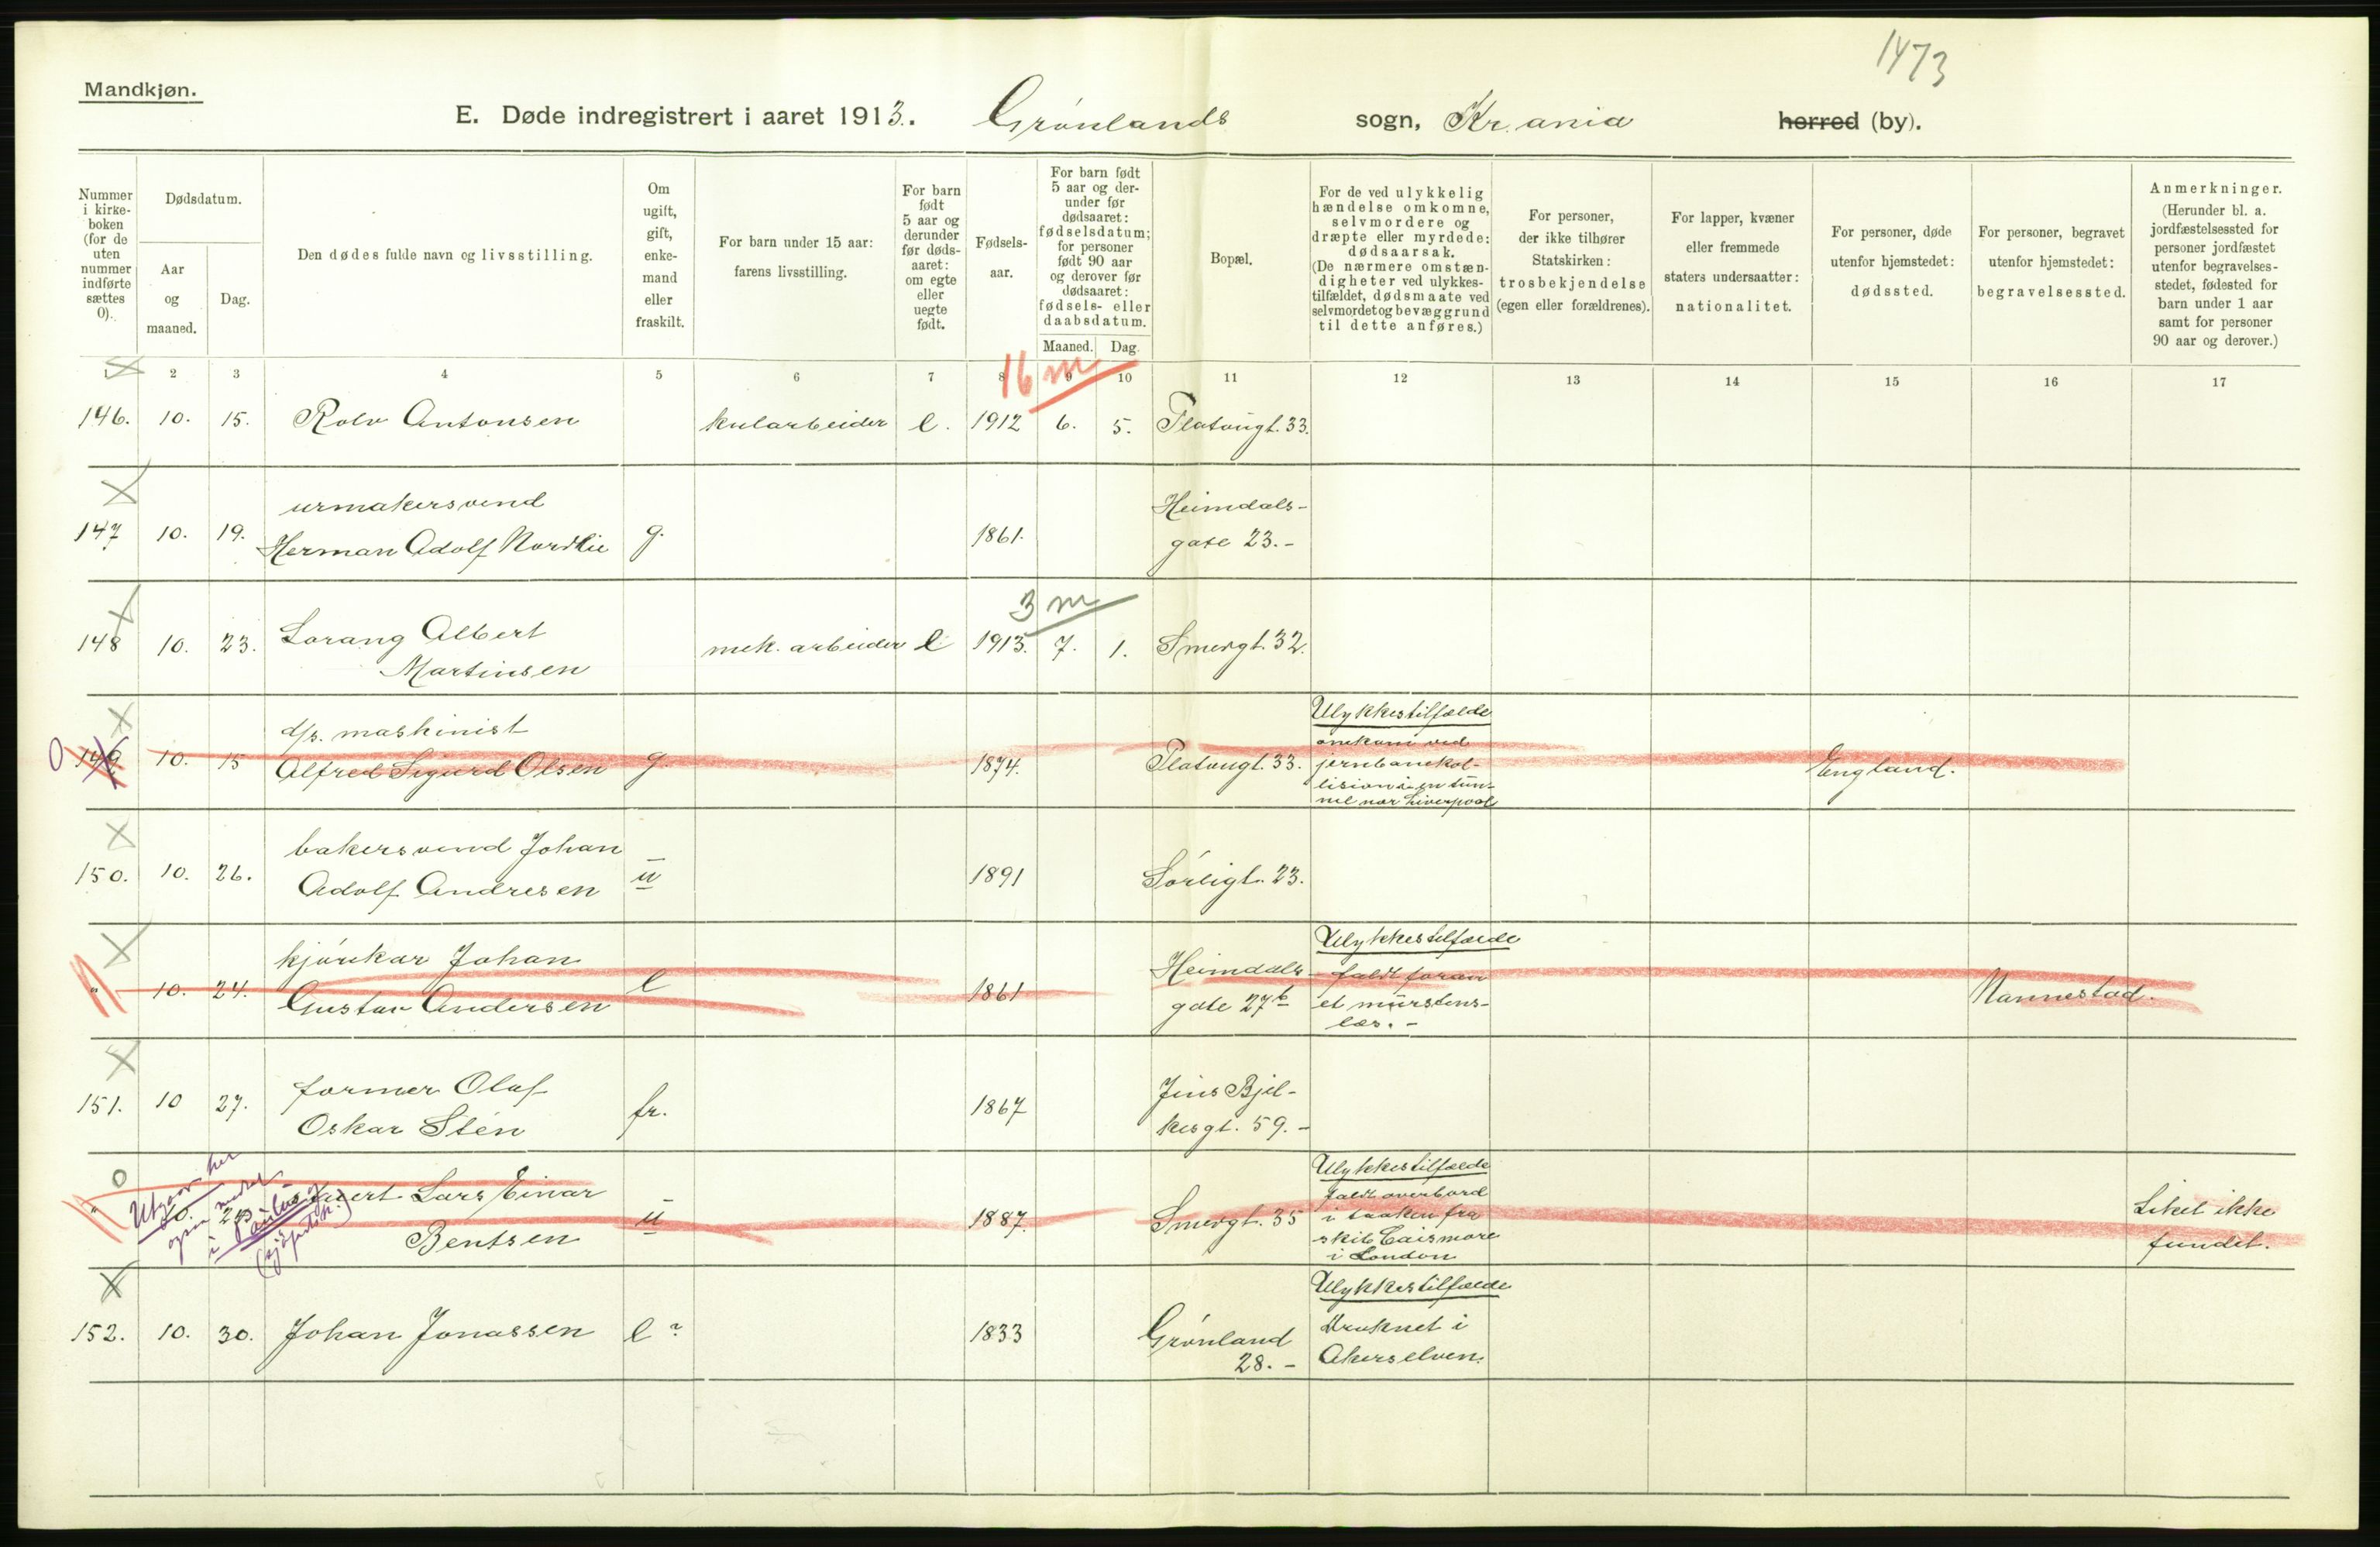 1473
Mandkjøn.
E. Døde indregistrert i aaret 1913. Grønlands sogn, Kr.ania herred (by).
Nummer i kirke-boken (for de uten nummer indførte sættes 0).
Dødsdatum.
Aar og maaned.
Dag.
Den dødes fulde navn og livsstilling.
Om ugift, gift, enke-mand eller fraskilt.
For barn under 15 aar: farens livsstilling.
For barn født 5 aar og derunder før døds-aaret: om egte eller uegte født.
Fødsels-aar.
For barn født 5 aar og der-under før dødsaaret: fødselsdatum; for personer født 90 aar og derover før dødsaaret: fødsels- eller daabsdatum.
Maaned. Dag.
Bopæl.
For de ved ulykkelig hændelse omkomne, selvmordere og dræpte eller myrdede: dødsaarsak. (De nærmere omstæn-digheter ved ulykkes-tilfældet, dødsmaate ved selvmordet og bevæggrund til dette anføres.)
For personer, der ikke tilhører Statskirken: trosbekjendelse (egen eller forældrenes).
For lapper, kvæner eller fremmede staters undersaatter: nationalitet.
For personer, døde utenfor hjemstedet: dødssted.
For personer, begravet utenfor hjemstedet: begravelsessted.
Anmerkninger. (Herunder bl. a. jordfæstelsessted for personer jordfæstet utenfor begravelses-stedet, fødested for barn under 1 aar samt for personer 90 aar og derover.)
1 2 3 4 5 6 7 8 9 10 11 12 13 14 15 16 17
16 m
146. 10. 15. Rolv Antonsen kularbeider e. 1912 6. 5. Platougt. 33.
urmakersvend Heimdals-
147 10. 19. Herman Adolf Nordlie g. 1861. gate 23.-
3 m
148 10. 23. Lorang Albert mek. arbeider e 1913. 7. 1. Smergt. 32.
Martinsen
d/s. maskinist Ulykkestilfælde
0 149 10. 15 Alfred Sigurd Olsen g 1874. Platougt. 33. omkom ved England.
jernbanekol-
lision i en tun-
nel nær Liverpool
bakersvend Johan
150. 10. 26. Adolf Andresen u 1891 Sørligt. 23.
kjørekar Johan Heimdals- Ulykkestilfælde
" 10. 24. Gustav Andersen e 1861 gate 27b faldt foran Nannestad.
et murstens-
læs. -
former Olaf Jens Bjel-
151. 10 27. Oskar Stén fr. 1867 kesgt. 59. -
0 Utgaar her
" 10. Lars Einar u 1887. Smergt. 35 Ulykkestilfælde Liket ikke
Bentsen faldt overbord fundet.
i taaken fra
skib Cairnmore
i London
152. 10. 30. Johan Jonassen e? 1833 Grønland Ulykkestilfælde
28. - Druknet i
Akerselven.